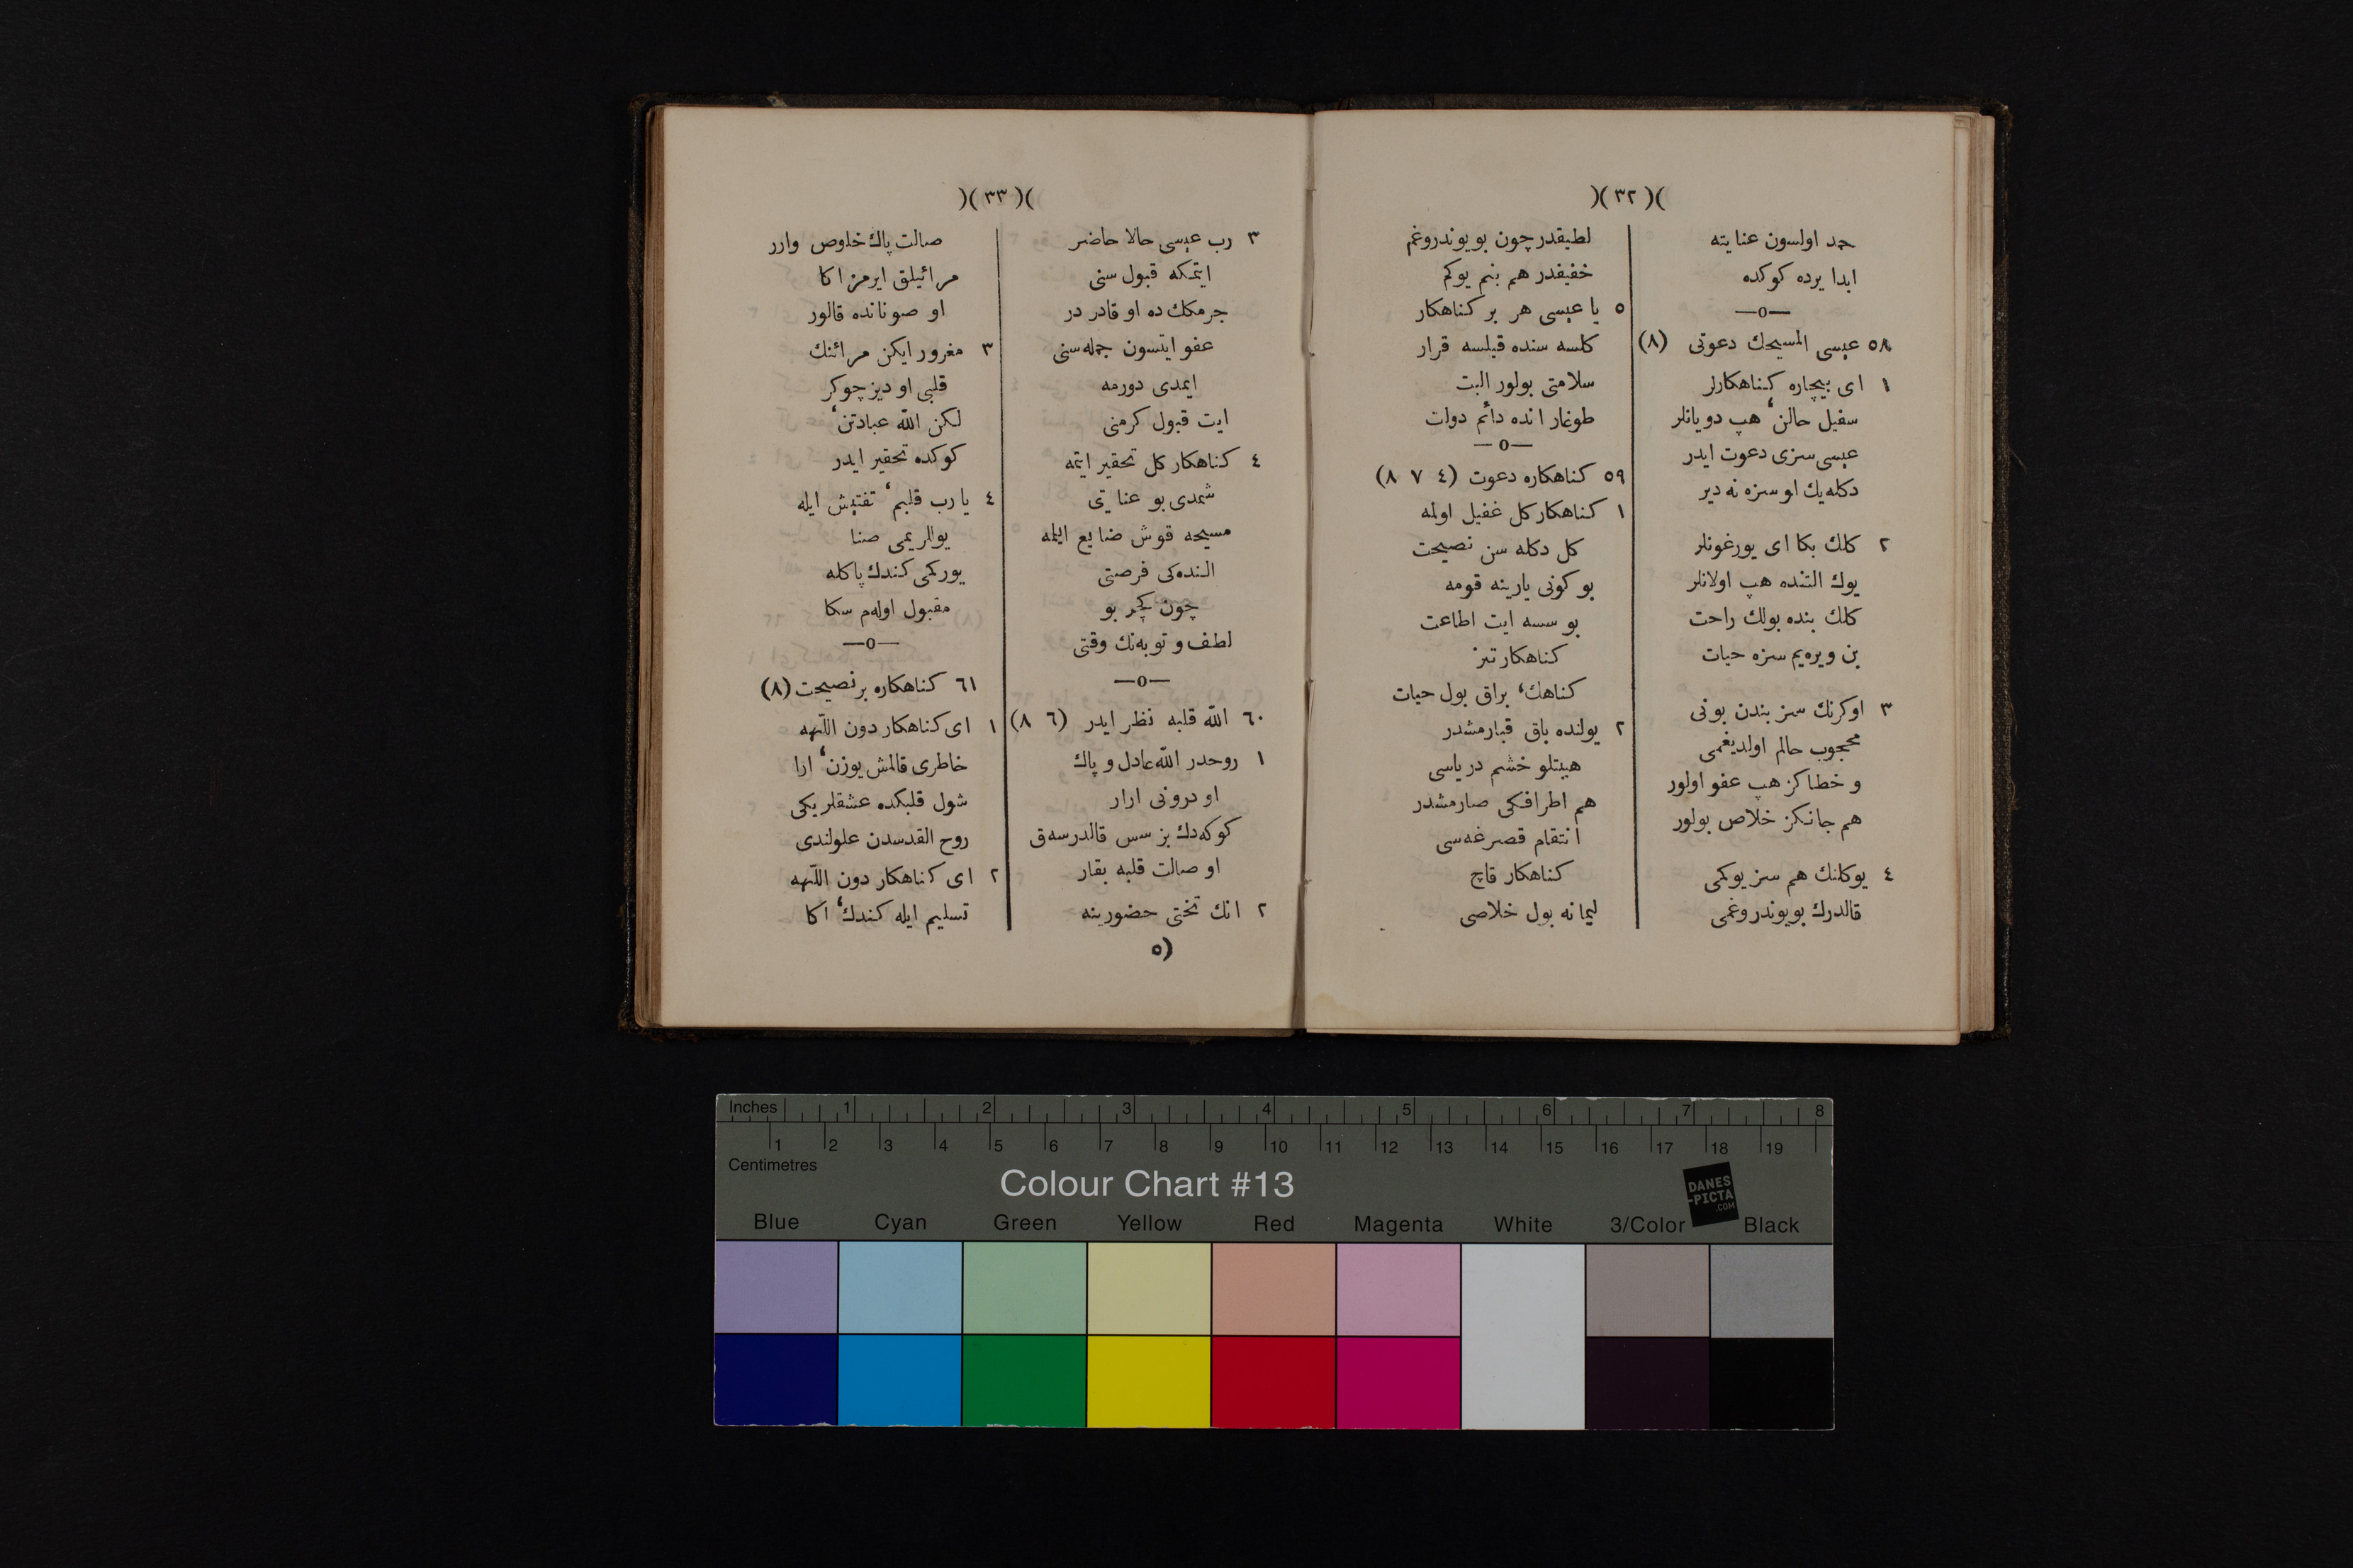 )( ٣٢ )(
حمد اولسون عنايته
ابدا يرده كوكده
—٥—
٥٨ عيسى المسيحك دعوتى (٨)
١ اى بيچاره كناهكارلر
سفيل حالن، هپ دويانلر
عيسى سزى دعوت ايدر
دكله‌يك او سزه نه دير
٢ كلك بكا اى يورغونلر
يوك التنده هپ اولانلر
كلك بنده بولك راحت
بن ويره‌يم سزه حيات
٣ اوكرنك سز بندن بونى
محجوب حالم اولديغمى
و خطاكز هپ عفو اولور
هم جانكز خلاص بولور
٤ يوكلنك هم سز يوكمى
قالدرك بويوندروغمى
لطيفدر چون بويوندروغم
خفيفدر هم بنم يوكم
٥ يا عيسى هر بر كناهكار
كلسه سنده قيلسه قرار
سلامتى بولور البت
طوغار انده دائم دولت
—٥—
٥٩ كناهكاره دعوت (٤ ٧ ٨)
١ كناهكار كل غفيل اولمه
كل دكله سن نصيحت
بو كونى يارينه قومه
بو سسه ايت اطاعت
كناهكار تيز
كناهك، براق بول حيات
٢ يولنده باق قبارمشدر
هيبتلو خشم درياسى
هم اطرافكى صارمشدر
انتقام قصرغه‌سى
كناهكار قاچ
ليمانه بول خلاصى
)( ٣٣ )(
٣ رب عيسى حالا حاضر
ايتمكه قبول سنى
جرمكك ده او قادر در
عفو ايتسون جمله‌سنى
ايمدى دورمه
ايت قبول كرمنى
٤ كناهكار كل تحقير ايتمه
شمدى بو عنايتى
مسيحه قوش ضايع ايلمه
النده‌كى فرصتى
چون كچر بو
لطف و توبه‌نك وقتى
—٥—
٦٠ اللّه قلبه نظر ايدر (٦ ٨)
١ روحدر اللّه عادل و پاك
او درونى ارار
كوكه‌دك بز سس قالدرسه‌ق
او صالت قلبه بقار
٢ انك تختى حضورينه
٥)
صالت پاك خلوص وارر
مرائيلق ايرمز اكا
او صوناندہ قالور
٣ مغرور ايكن مرائنك
قلبى او ديز چوكر
لكن اللّه عبادتن،
كوكده تحقير ايدر
٤ يا رب قلبم، تفتيش ايله
يوالريمى صنا
يوركمى كندك پاكله
مقبول اوله‌م سكا
—٥—
٦١ كناهكاره بر نصيحت (٨)
١ اى كناهكار دون اللّهه
خاطرى قالمش يوزن، ارا
شول قلبكده عشقلر يكى
روح القدسدن علولندى
٢ اى كناهكار دون اللّهه
تسليم ايله كندك، اكا
Inches 1 2 3 4 5 6 7 8
1 2 3 4 5 6 7 8 9 10 11 12 13 14 15 16 17 18 19
Centimetres
Colour Chart #13
DANES
-PICTA
.COM
Blue Cyan Green Yellow Red Magenta White 3/Color Black